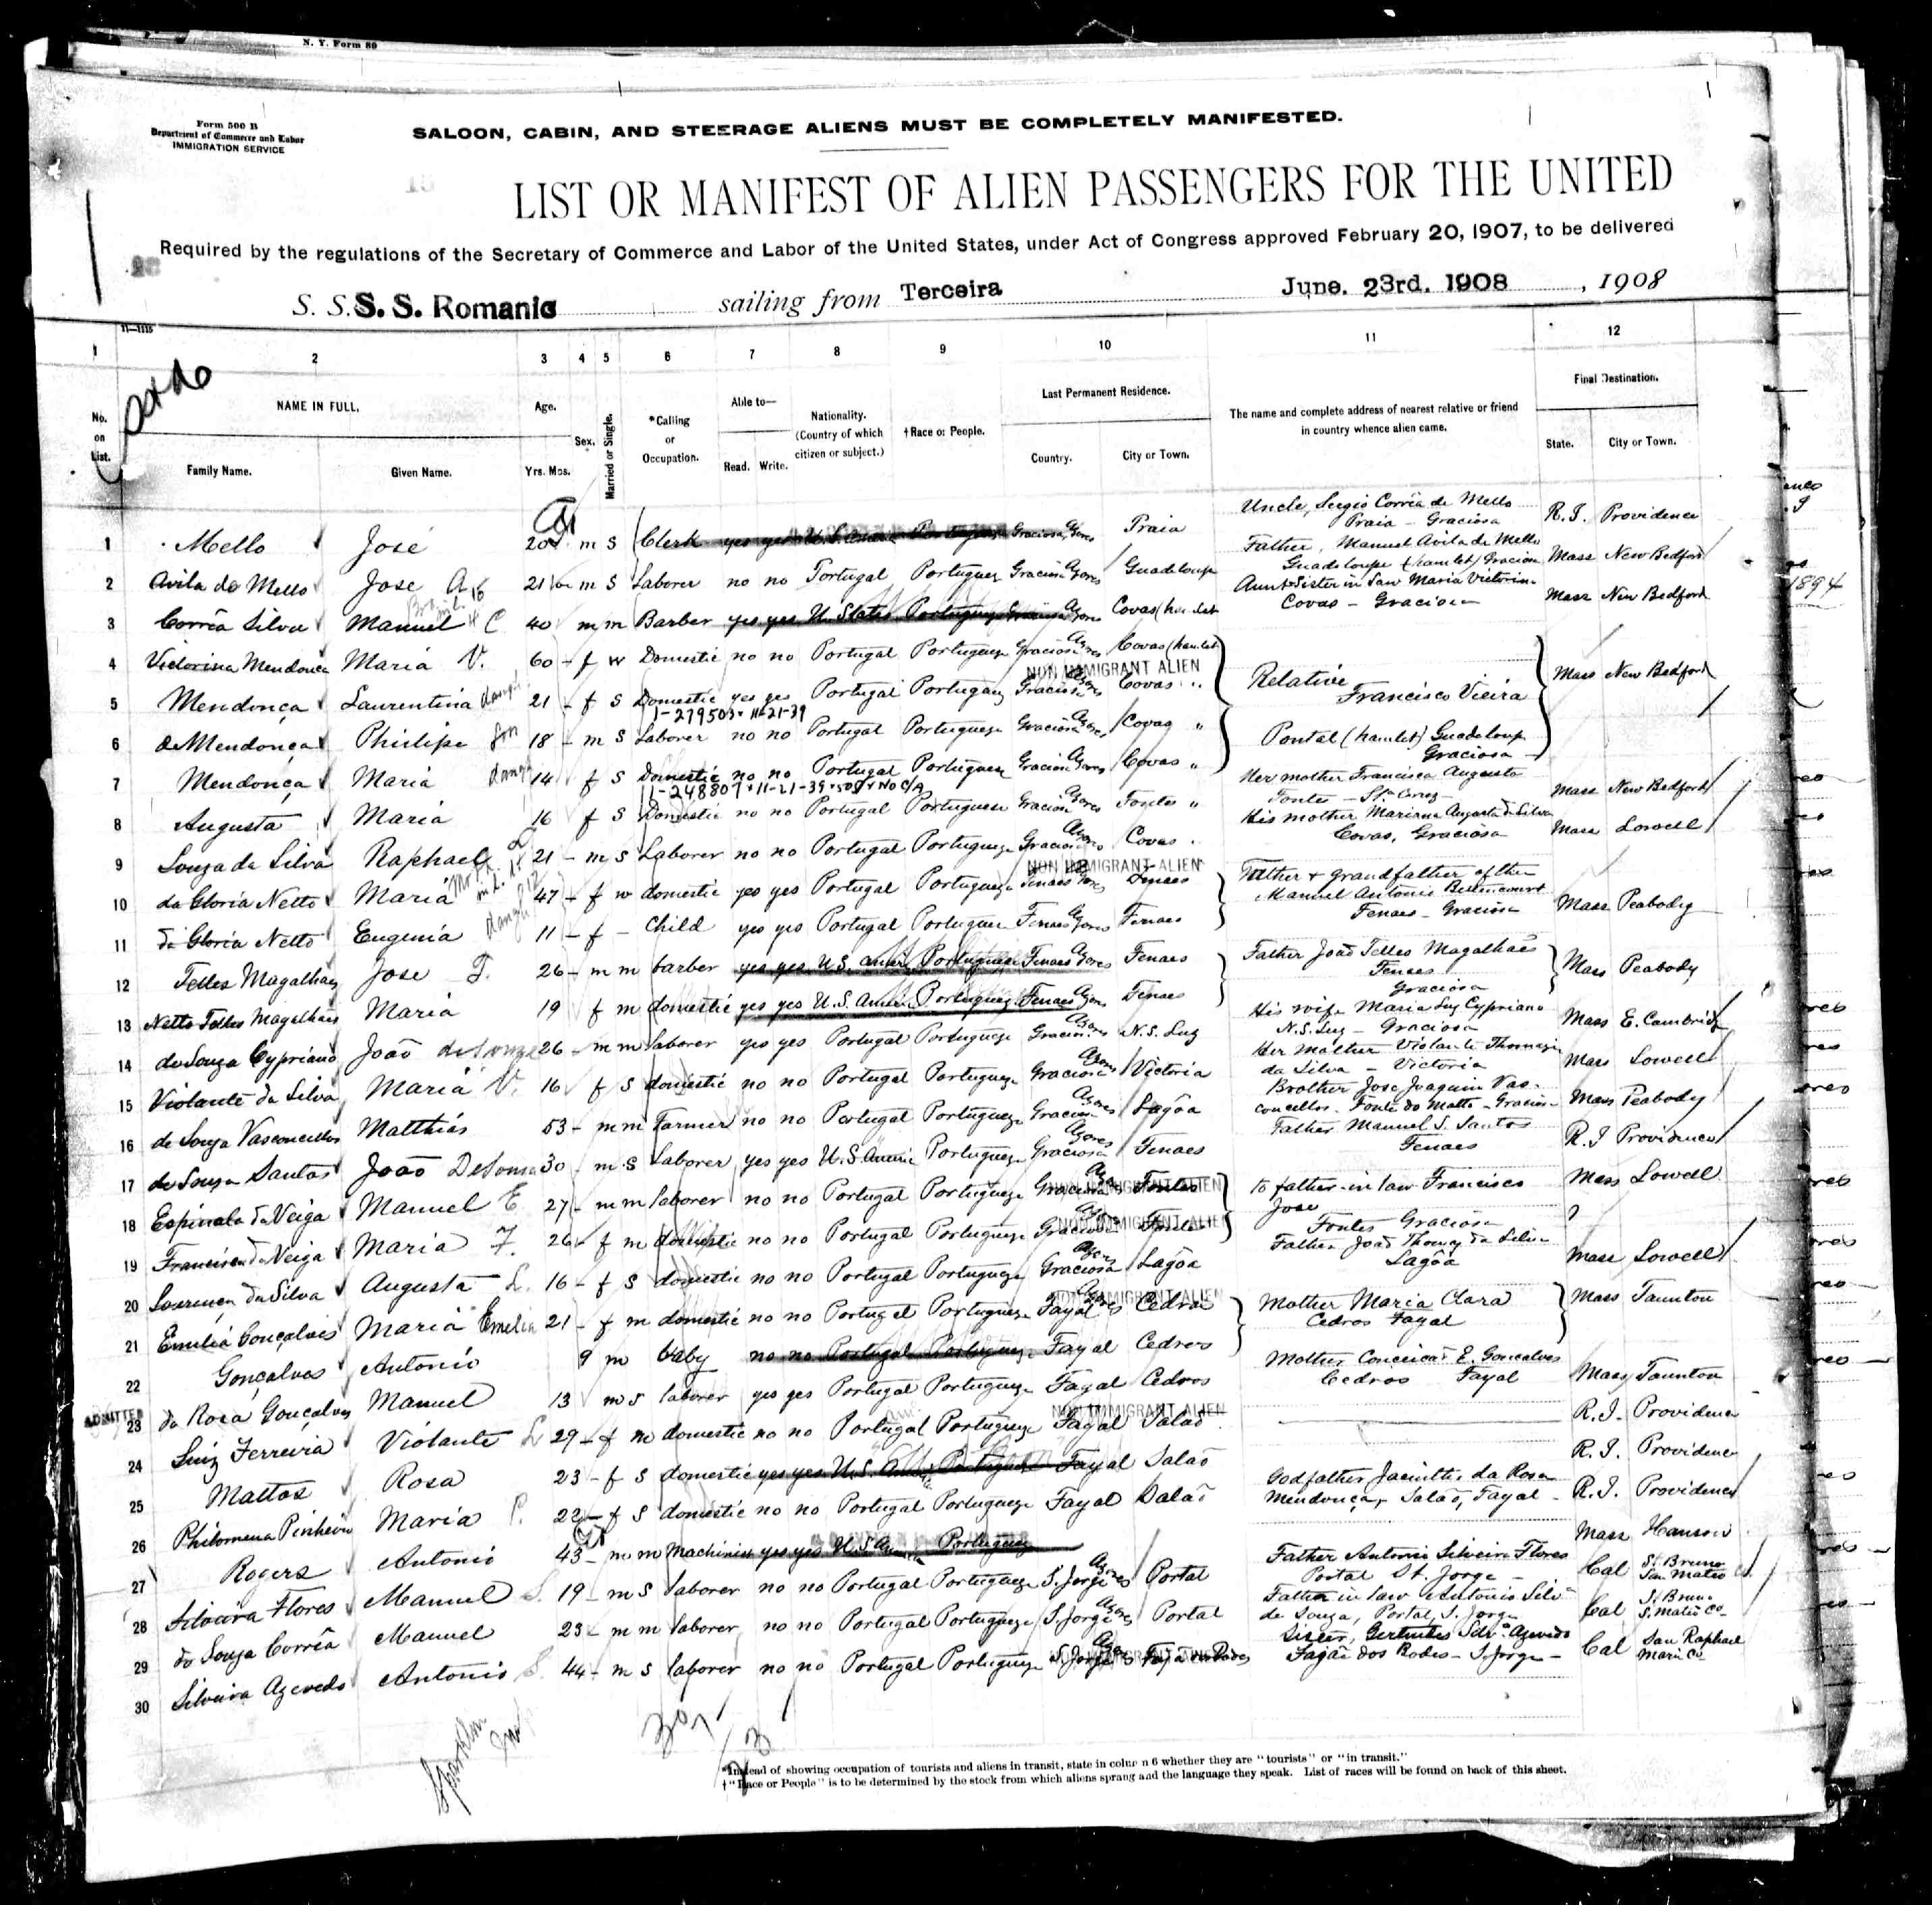 N. Y. Form 89
Form 500 B
Department of Commerce and Labor
IMMIGRATION SERVICE
SALOON, CABIN, AND STEERAGE ALIENS MUST BE COMPLETELY MANIFESTED.
LIST OR MANIFEST OF ALIEN PASSENGERS FOR THE UNITED
Required by the regulations of the Secretary of Commerce and Labor of the United States, under Act of Congress approved February 20, 1907, to be delivered
S. S. S. S. Romanic sailing from Terceira June. 23rd. 1908 , 1908
11—1115
1 2 3 4 5 6 7 8 9 10 11 12
No. on List. NAME IN FULL. Family Name. Given Name. Age. Yrs. Mos. Sex. Married or Single. *Calling or Occupation. Able to— Read. Write. Nationality. (Country of which citizen or subject.) †Race or People. Last Permanent Residence. Country. City or Town. The name and complete address of nearest relative or friend in country whence alien came. Final Destination. State. City or Town.
1 Mello José 20 m s Clerk yes yes Graciosa Azores Praia Uncle, Sergio Corrêa de Mello Praia - Graciosa R.I. Providence
2 Avila de Mello Jose A 21 m s Laborer no no Portugal Portuguez Graciosa Azores Guadeloupe Father, Manuel Avila de Mello Guadeloupe (hamlet) Graciosa Mass New Bedford
3 Corrêa Silva Manuel C 40 m m Barber yes yes U. States Portuguez Graciosa Azores Covas (hamlet Aunt Sister in law Maria Victorina Covas - Graciosa Mass New Bedford
4 Victorina Mendonça Maria V. 60 - f w Domestic no no Portugal Portuguez Graciosa Azores Covas (hamlet
NON IMMIGRANT ALIEN
Relative Francisco Vieira Pontal (hamlet) Guadeloup Graciosa Mass New Bedford
5 Mendonça Laurentina 21 - f s Domestic yes yes Portugal Portuguez Graciosa Azores Covas "
1-279503 11-21-39
6 de Mendonça Philipe son 18 - m s Laborer no no Portugal Portuguez Graciosa Azores Covas "
7 Mendonça Maria 14 f s Domestic no no Portugal Portuguez Graciosa Azores Covas "
11-21-39
8 Augusta Maria 16 f s Domestic no no Portugal Portuguez Graciosa Azores Fontes " Her mother Francisca Augusta Fontes - Sta Cruz Mass New Bedford
9 Souza da Silva Raphael 21 - m s Laborer no no Portugal Portuguez Graciosa Azores Covas His mother Mariana Augusta da Silva Covas, Graciosa Mass Lowell
NON IMMIGRANT ALIEN
10 da Gloria Netto Maria 47 - f w domestic yes yes Portugal Portuguez Fenaes Azores Fenaes Father & grandfather of them Manuel Antonio Bettencourt Fenaes - Graciosa Mass Peabody
11 da Gloria Netto Eugenia 11 - f - Child yes yes Portugal Portuguez Fenaes Azores Fenaes
12 Telles Magalhaes Jose T. 26 - m m barber yes yes U.S. Amer Portuguez Fenaes Azores Fenaes Father João Telles Magalhães Fenaes Graciosa Mass Peabody
13 Netto Telles Magalhães Maria 19 f m domestic yes yes U.S. Ameri Portuguez Fenaes Azores Fenaes
14 de Souza Cypriano João de Souza 26 - m m laborer yes yes Portugal Portuguez Graciosa Azores N.S. Luz His wife Maria Luz Cypriano N.S. Luz - Graciosa Mass E. Cambridge
15 Violante da Silva Maria V. 16 f s domestic no no Portugal Portuguez Graciosa Azores Victoria Her mother Violante Thomazia da Silva - Victoria Mass Lowell
16 de Souza Vasconcellos Matthias 53 - m m Farmer no no Portugal Portuguez Graciosa Azores Lagôa Brother Jose Joaquim Vasconcellos. Fonte do Matto - Graciosa Mass Peabody
17 de Souza Santos João De Souza 30 - m s Laborer yes yes U.S. Americ Portuguez Graciosa Azores Fenaes Father Manuel S. Santos Fenaes R.I Providence
18 Espinola da Veiga Manuel E 27 - m m laborer no no Portugal Portuguez Graciosa Azores Fontes to father-in law Francisco Jose Fontes Graciosa Mass Lowell
NON IMMIGRANT ALIEN
19 Francisca da Veiga Maria F. 26 - f m domestic no no Portugal Portuguez Graciosa Fontes ?
NON IMMIGRANT ALIEN
20 Lourença da Silva Augusta L. 16 - f s domestic no no Portugal Portuguez Graciosa Azores Lagôa Father João Thomaz da Silva Lagôa Mass Lowell
NON IMMIGRANT ALIEN
21 Emilia Gonçalves Maria Emelia 21 - f m domestic no no Portugal Portuguez Fayal Azores Cedros Mother Maria Clara Cedros Fayal Mass Taunton
22 Gonçalves Antonio 9 m baby no no Portugal Portuguez Fayal Cedros
23 da Rosa Gonçalves Manuel 13 m s laborer yes yes Portugal Portuguez Fayal Cedros Mother Conceicao E. Goncalves Cedros Fayal Mass Taunton
ADMITTED
NON IMMIGRANT ALIEN
24 Luiz Ferreira Violante L 29 - f m domestic no no Portugal Portuguez Fayal Salaõ R.I. Providence
25 Mattos Rosa 23 - f s domestic yes yes U.S. Portuguez Fayal Salaõ R.I. Providence
26 Philomena Pinheiro Maria P. 22 - f s domestic no no Portugal Portuguez Fayal Salaõ Godfather Jacintho da Rosa Mendonça, Salaõ, Fayal R.I. Providence
27 Rogers Antonio 43 - m m Machinist yes yes U.S. Portuguez Mass Hanson
28 Silveira Flores Manuel S. 19 - m s laborer no no Portugal Portuguez S. Jorge Azores Portal Father Antonio Silveira Flores Portal St. Jorge - Cal S. Bruno San Mateo
29 de Souza Corrêa Manuel 23 - m m laborer no no Portugal Portuguez S. Jorge Azores Portal Father in law Antonio Silv de Souza, Portal, S. Jorge Cal S. Bruno S. Mateo Co
30 Silveira Azevedo Antonio S. 44 - m s laborer no no Portugal Portuguez S. Jorge Sister, Gertrudes Silva Azevedo Fajãa dos Rodes - S. Jorge - Cal San Raphael Marin Co
*Instead of showing occupation of tourists and aliens in transit, state in column 6 whether they are "tourists" or "in transit."
†"Race or People" is to be determined by the stock from which aliens sprang and the language they speak. List of races will be found on back of this sheet.
1894